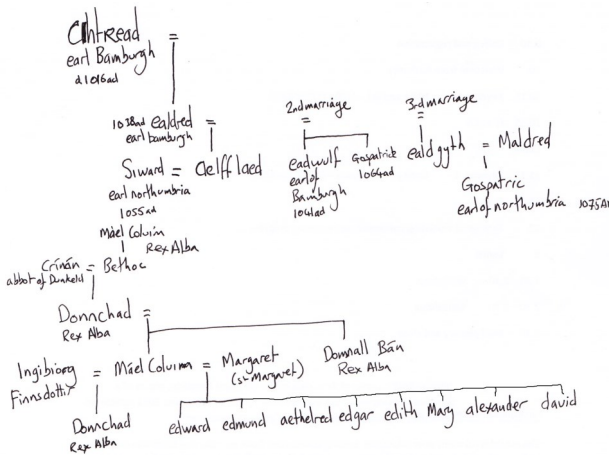 Uhtread =
earl Bamburgh
d1016ad
1038ad ealdred =
earl bamburgh
2nd marriage
=
3rd marriage
=
Siward = Aelfflaed
earl northumbria
1055ad
eadwulf
earl of
Bamburgh
1041ad
Gospatrick
1064ad
ealdgyth = Maldred
Gospatric
earl of northumbria 1075AD
Máel Coluim
Rex Alba
Crínán = Bethoc
abbot of Dunkeld
Donnchad =
Rex Alba
Ingibiorg = Máel Coluim = Margaret
Finnsdottir
(St Margaret)
Domnall Bán
Rex Alba
Donnchad
Rex Alba
edward edmund aethelred edgar edith Mary alexander david